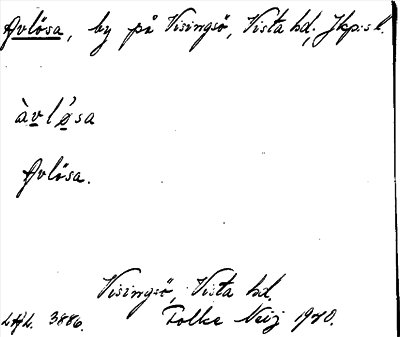 Avlösa, by på Visingsö, Vista hd, Jkp:s l.
àvlǿsa
Avlösa.
Visingsö, Vista hd.
3886. Folke Neij 1920.